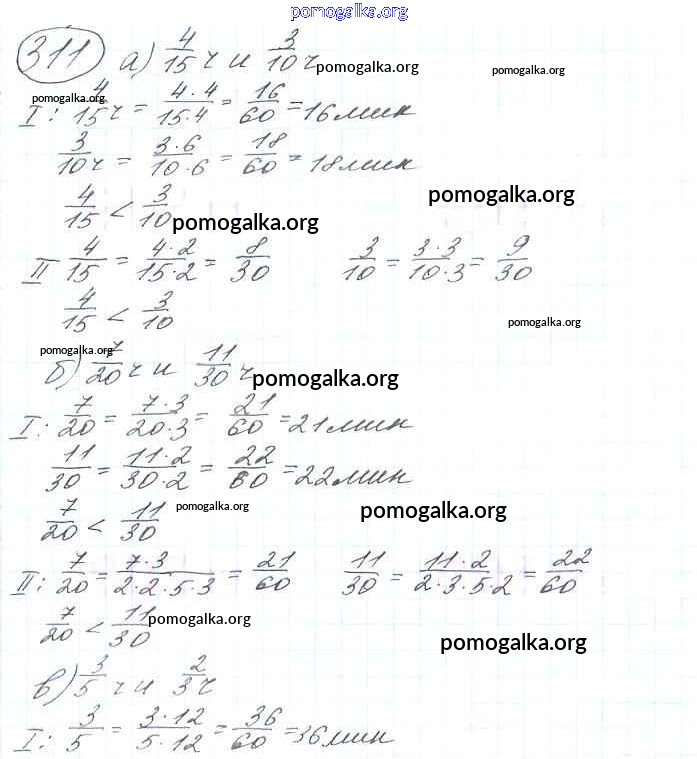 pomogalka.org
311 а) 4/15 ч и 3/10 ч pomogalka.org pomogalka.org
pomogalka.org
I: 4/15 ч = 4·4/15·4 = 16/60 = 16 мин
3/10 ч = 3·6/10·6 = 18/60 = 18 мин
4/15 < 3/10 pomogalka.org pomogalka.org
II 4/15 = 4·2/15·2 = 8/30 3/10 = 3·3/10·3 = 9/30
4/15 < 3/10 pomogalka.org
pomogalka.org
б) 7/20 ч и 11/30 ч pomogalka.org
I: 7/20 = 7·3/20·3 = 21/60 = 21 мин
11/30 = 11·2/30·2 = 22/60 = 22 мин
7/20 < 11/30 pomogalka.org pomogalka.org
II: 7/20 = 7·3/2·2·5·3 = 21/60 11/30 = 11·2/2·3·5·2 = 22/60
7/20 < 11/30 pomogalka.org pomogalka.org
в) 3/5 ч и 2/3 ч
I: 3/5 = 3·12/5·12 = 36/60 = 36 мин